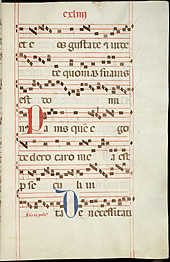 cxliiii
et e os gustate et uide
te quoniam suauis
est do mi
n P a nis quē e go
de dero caro me a est
p se cu li ui
ta D e necessitati